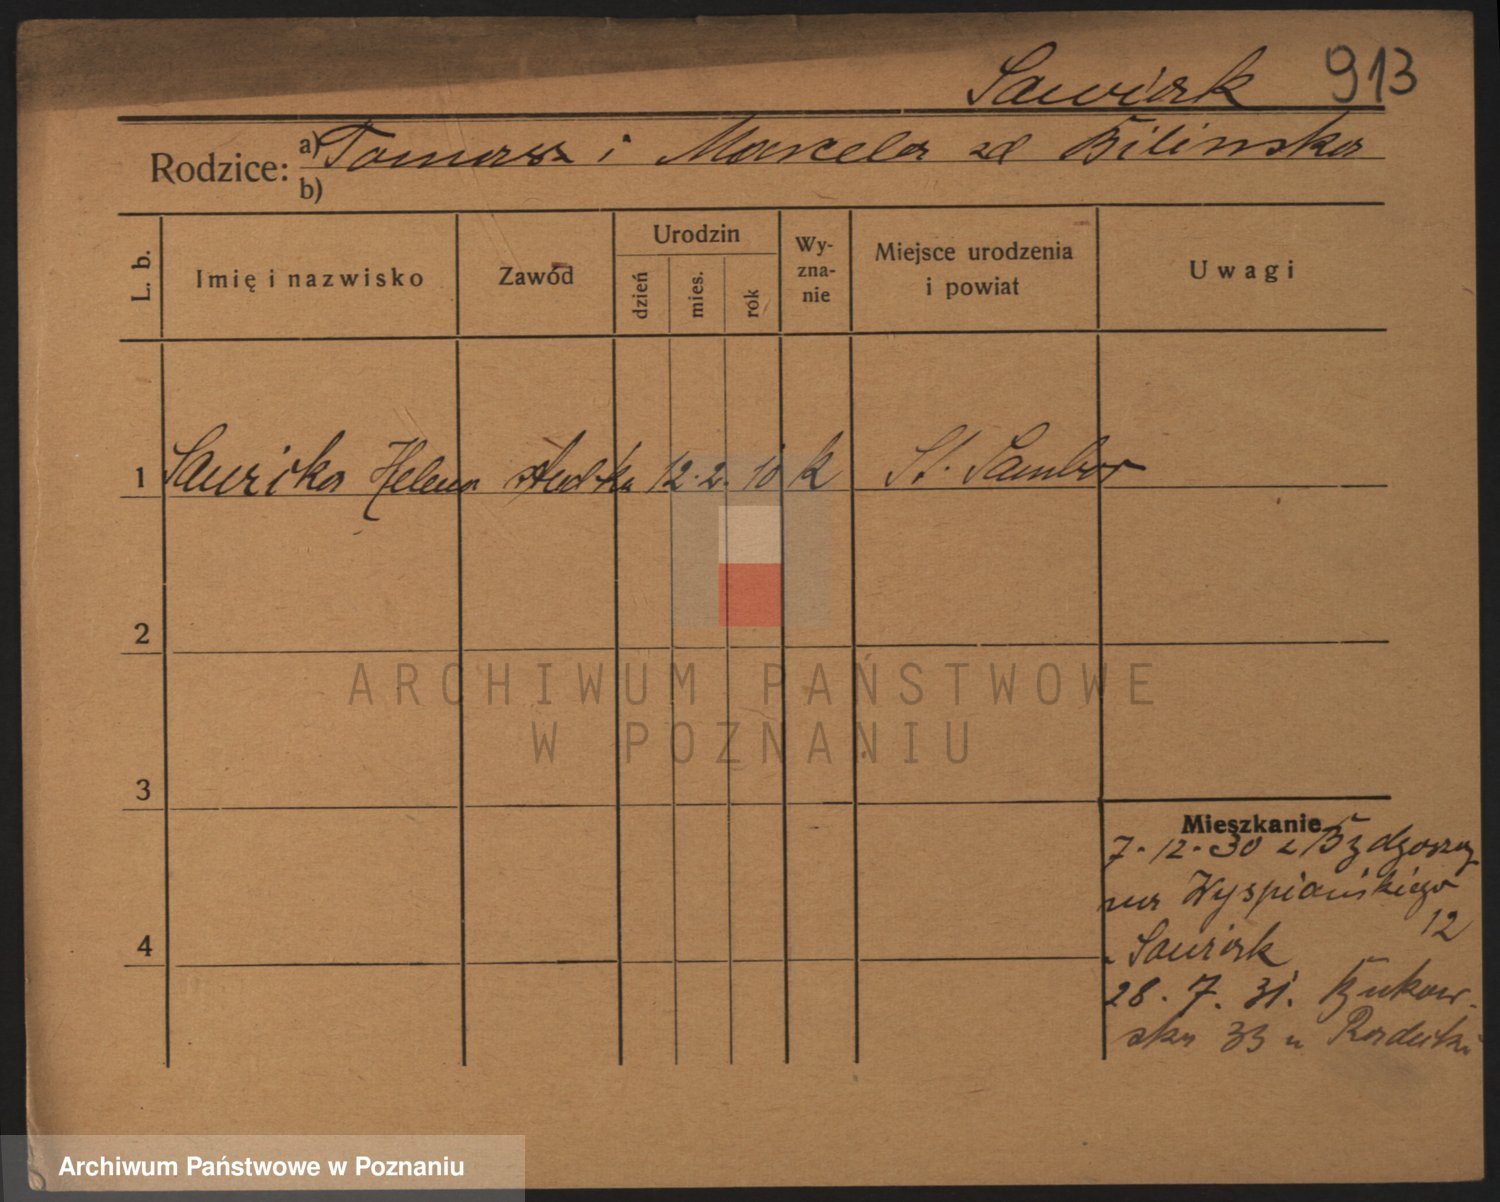 Sawiak 913
Rodzice: a) Tomasz i Marcela zd Bilinska
b)
L. b.
Imię i nazwisko
Zawód
Urodzin
dzień
mies.
rok
Wy-
zna-
nie
Miejsce urodzenia
i powiat
Uwagi
1 Helena studtka 12. 2. 10 k St. Sambor
2
3
4
Mieszkanie
7. 12. 30 z Bydgoszczy
na Wyspiańskiego
12
28. 7. 31. Bukow-
ska 33 u
ARCHIWUM PAŃSTWOWE
W POZNANIU
Archiwum Państwowe w Poznaniu